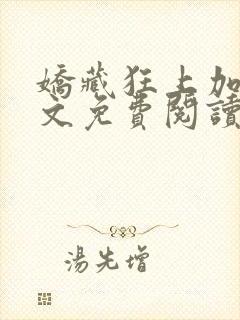 嬌藏狂上加
文免費閱讀
湯先增